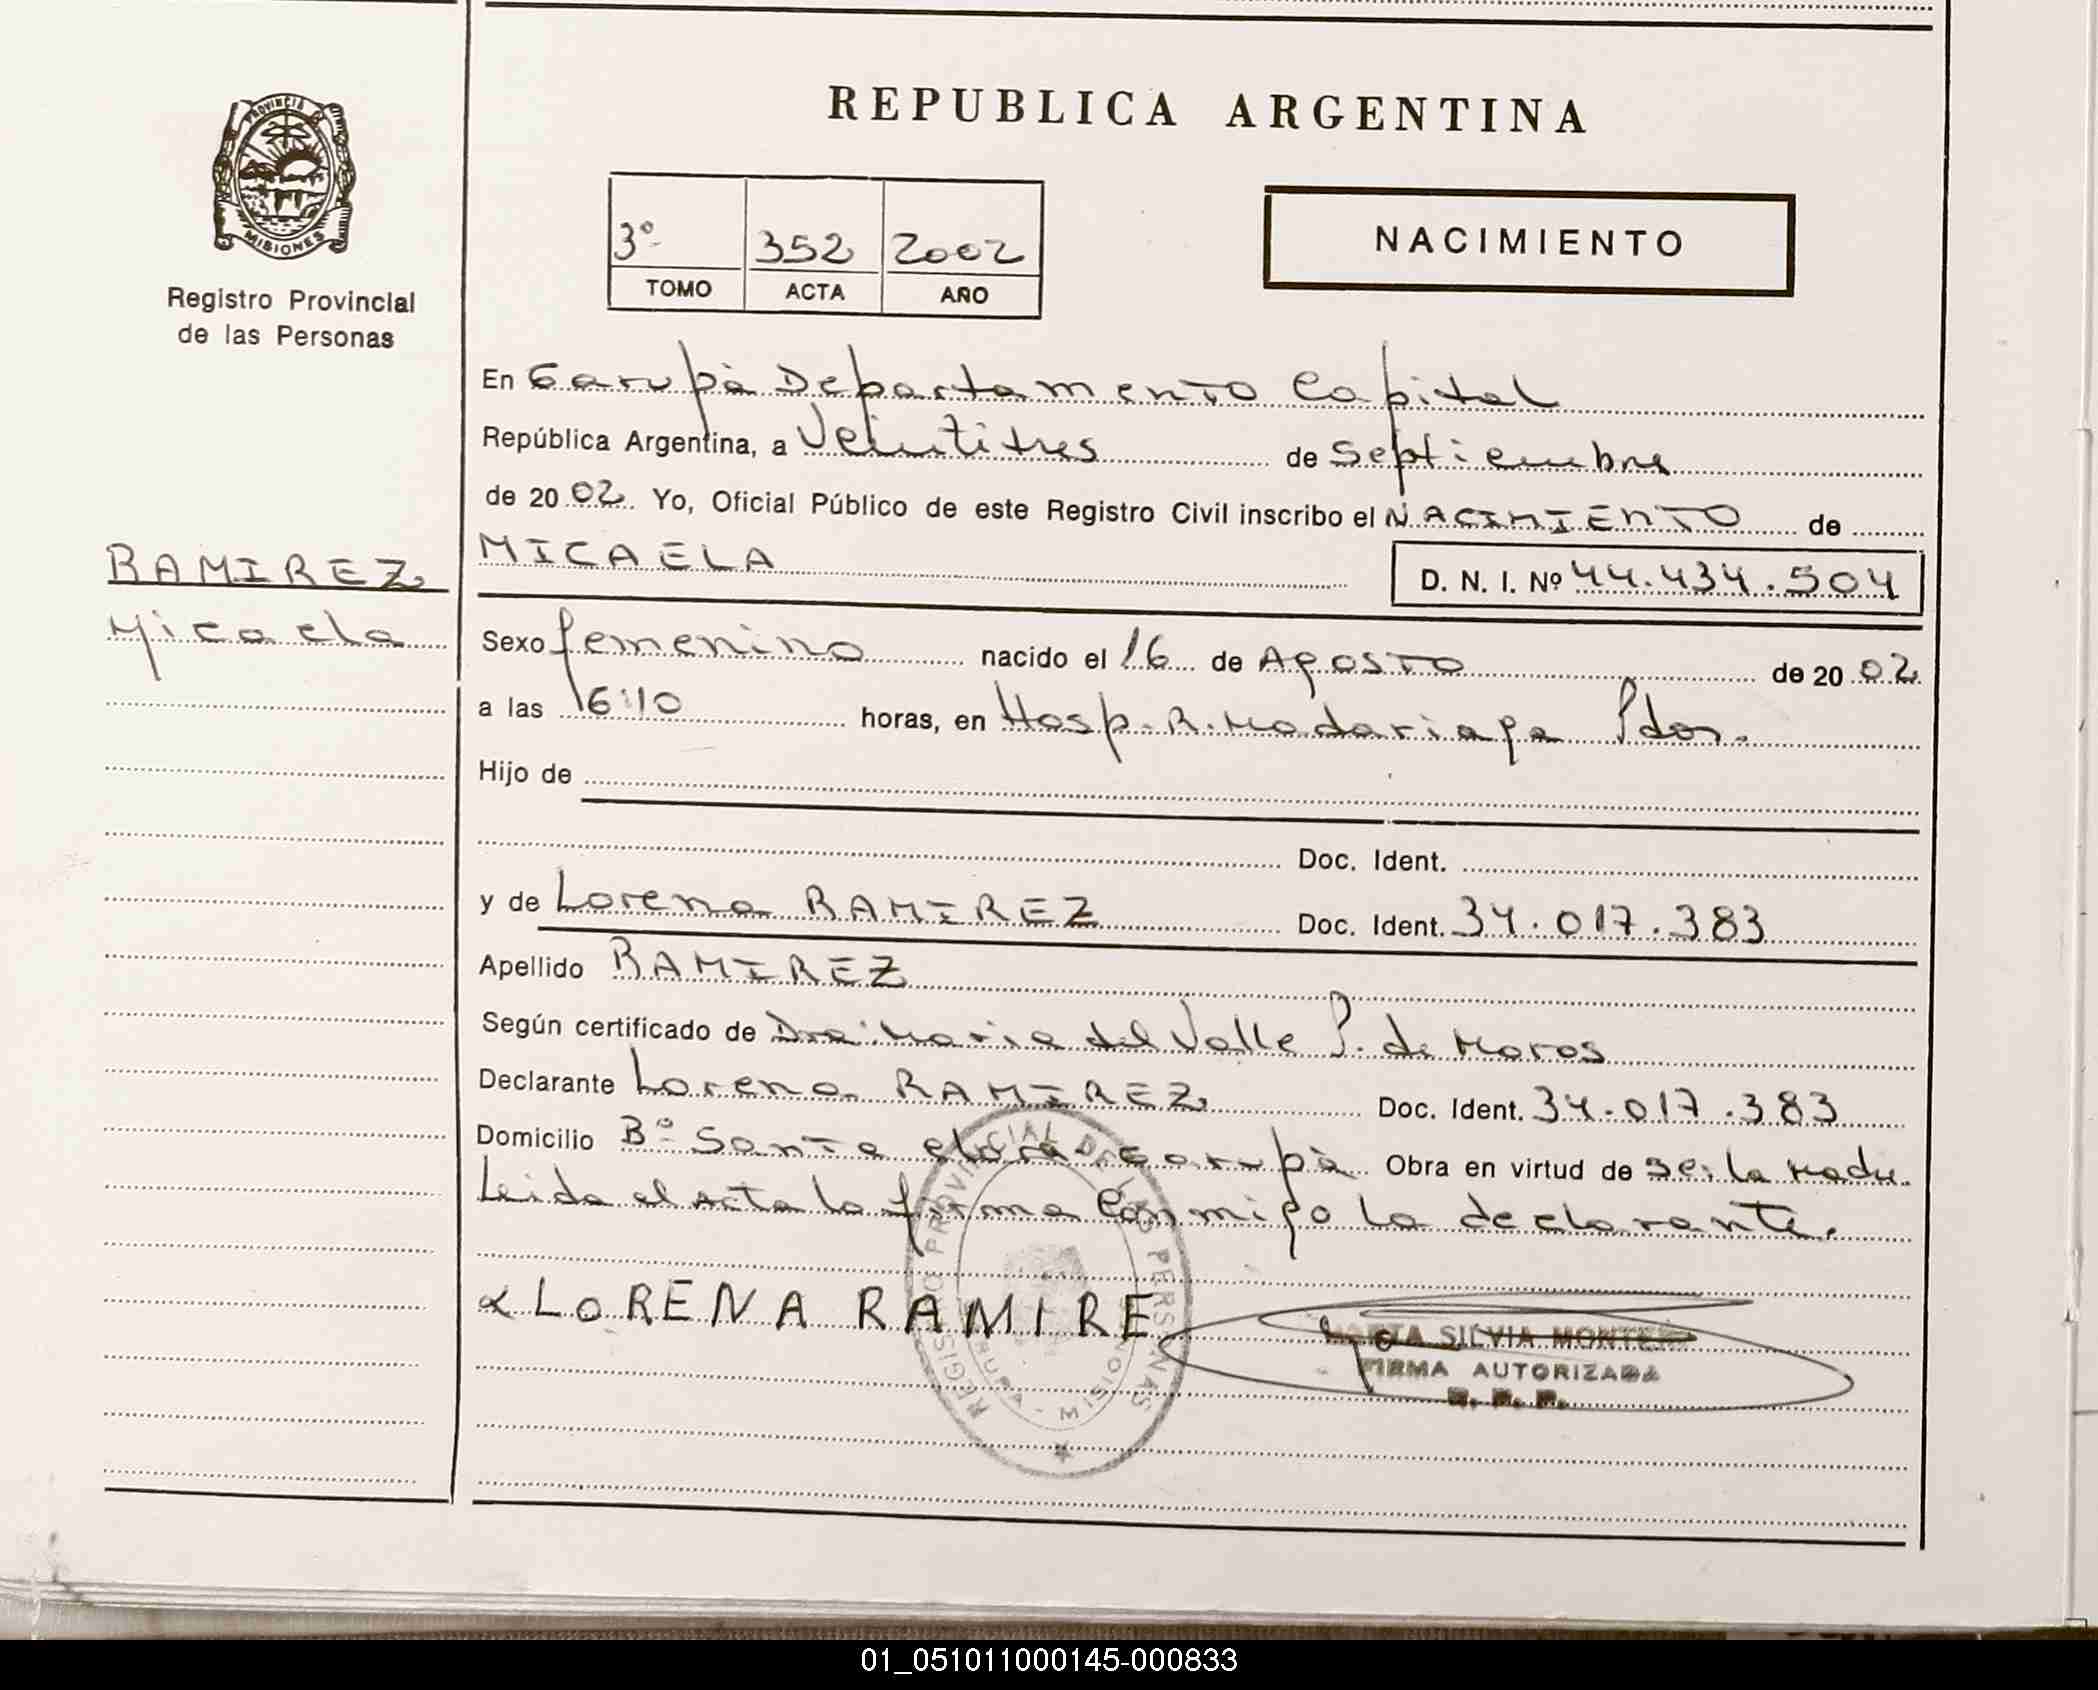 REPUBLICA ARGENTINA
PROVINCIA
MISIONES
Registro Provincial
de las Personas
3º 352 2002
TOMO ACTA AÑO
NACIMIENTO
En Garupà Departamento Capital
República Argentina, a Veintitres de Septiembre
de 2002. Yo, Oficial Público de este Registro Civil inscribo el NACIMIENTO de
MICAELA D. N. I. Nº 44.434.504
RAMIREZ
Micaela
Sexo femenino nacido el 16 de Agosto de 2002
a las 16:10 horas, en Hosp. R. Madariaga Pdas.
Hijo de
Doc. Ident.
y de Lorena RAMIREZ Doc. Ident. 34.017.383
Apellido RAMIREZ
Según certificado de Dra. Maria del Valle P. de Moros
Declarante Lorena RAMIREZ Doc. Ident. 34.017.383
Domicilio Bº Santa clara Garupà Obra en virtud de ser la Madre.
Leida el acta la firma Conmigo la declarante.
LORENA RAMIRE
REGISTRO PROVINCIAL DE LAS PERSONAS
MISIONES
SILVIA
FIRMA AUTORIZADA
01_051011000145-000833